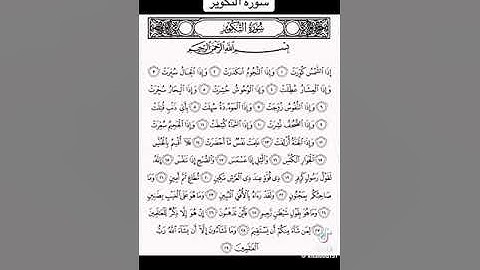 سورة التكوير
سُورَةُ التَّكْوِيرِ
بِسْمِ اللَّهِ الرَّحْمَٰنِ الرَّحِيمِ
إِذَا الشَّمْسُ كُوِّرَتْ ١ وَإِذَا النُّجُومُ انكَدَرَتْ ٢ وَإِذَا الْجِبَالُ سُيِّرَتْ ٣
وَإِذَا الْعِشَارُ عُطِّلَتْ ٤ وَإِذَا الْوُحُوشُ حُشِرَتْ ٥ وَإِذَا الْبِحَارُ سُجِّرَتْ
٦ وَإِذَا النُّفُوسُ زُوِّجَتْ ٧ وَإِذَا الْمَوْءُودَةُ سُئِلَتْ ٨ بِأَيِّ ذَنبٍ قُتِلَتْ
٩ وَإِذَا الصُّحُفُ نُشِرَتْ ١٠ وَإِذَا السَّمَاءُ كُشِطَتْ ١١ وَإِذَا الْجَحِيمُ سُعِّرَتْ
١٢ وَإِذَا الْجَنَّةُ أُزْلِفَتْ ١٣ عَلِمَتْ نَفْسٌ مَّا أَحْضَرَتْ ١٤ فَلَا أُقْسِمُ بِالْخُنَّسِ
١٥ الْجَوَارِ الْكُنَّسِ ١٦ وَاللَّيْلِ إِذَا عَسْعَسَ ١٧ وَالصُّبْحِ إِذَا تَنَفَّسَ ١٨ إِنَّهُ
لَقَوْلُ رَسُولٍ كَرِيمٍ ١٩ ذِي قُوَّةٍ عِندَ ذِي الْعَرْشِ مَكِينٍ ٢٠ مُّطَاعٍ ثَمَّ أَمِينٍ ٢١ وَمَا
صَاحِبُكُم بِمَجْنُونٍ ٢٢ وَلَقَدْ رَآهُ بِالْأُفُقِ الْمُبِينِ ٢٣ وَمَا هُوَ عَلَى الْغَيْبِ بِضَنِينٍ
٢٤ وَمَا هُوَ بِقَوْلِ شَيْطَانٍ رَّجِيمٍ ٢٥ فَأَيْنَ تَذْهَبُونَ ٢٦ إِنْ هُوَ إِلَّا ذِكْرٌ لِّلْعَالَمِينَ
٢٧ لِمَن شَاءَ مِنكُمْ أَن يَسْتَقِيمَ ٢٨ وَمَا تَشَاءُونَ إِلَّا أَن يَشَاءَ اللَّهُ رَبُّ
الْعَالَمِينَ ٢٩